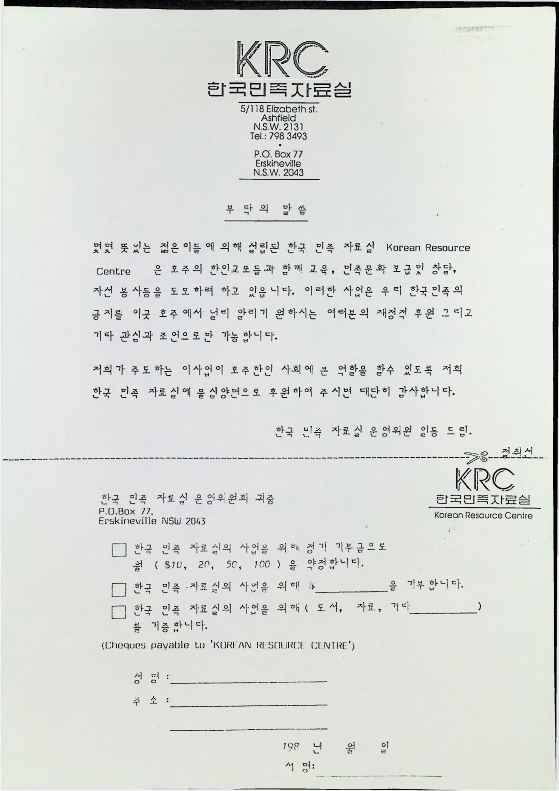 KRC
한국민족자료실
5/118 Elizabeth st.
Ashfield
N.S.W. 2131
Tel.: 798 3493
•
P.O. Box 77
Erskineville
N.S.W. 2043
부 탁 의 말 씀
몇몇 뜻있는 젊은이들에 의해 설립된 한국 민족 자료실 Korean Resource
Centre 은 호주의 한인교포들과 함께 교육, 민족문화 보급및 창달,
자선 봉사등을 도모하려 하고 있읍니다. 이러한 사업은 우리 한국민족의
긍지를 이곳 호주에서 널리 알리기 원하시는 여러분의 재정적 후원 그리고
기타 관심과 조언으로만 가능합니다.
저희가 주도하는 이사업이 호주한인 사회에 큰 역할을 할수 있도록 저희
한국 민족 자료실에 물심양면으로 후원하여 주시면 대단히 감사합니다.
한국 민족 자료실 운영위원 일동 드림.
절취선
KRC
한국민족자료실
Korean Resource Centre
한국 민족 자료실 운영위원회 귀중
P.O.Box 77,
Erskineville NSW 2043
한국 민족 자료실의 사업을 위해 정기 기부금으로
월 ( $10, 20, 50, 100 ) 을 약정합니다.
한국 민족 자료실의 사업을 위해 $ 을 기부합니다.
한국 민족 자료실의 사업을 위해 ( 도서, 자료, 기타 )
를 기증합니다.
(Cheques payable to 'KOREAN RESOURCE CENTRE')
성 명 :
주 소 :
198 년 월 일
서 명: